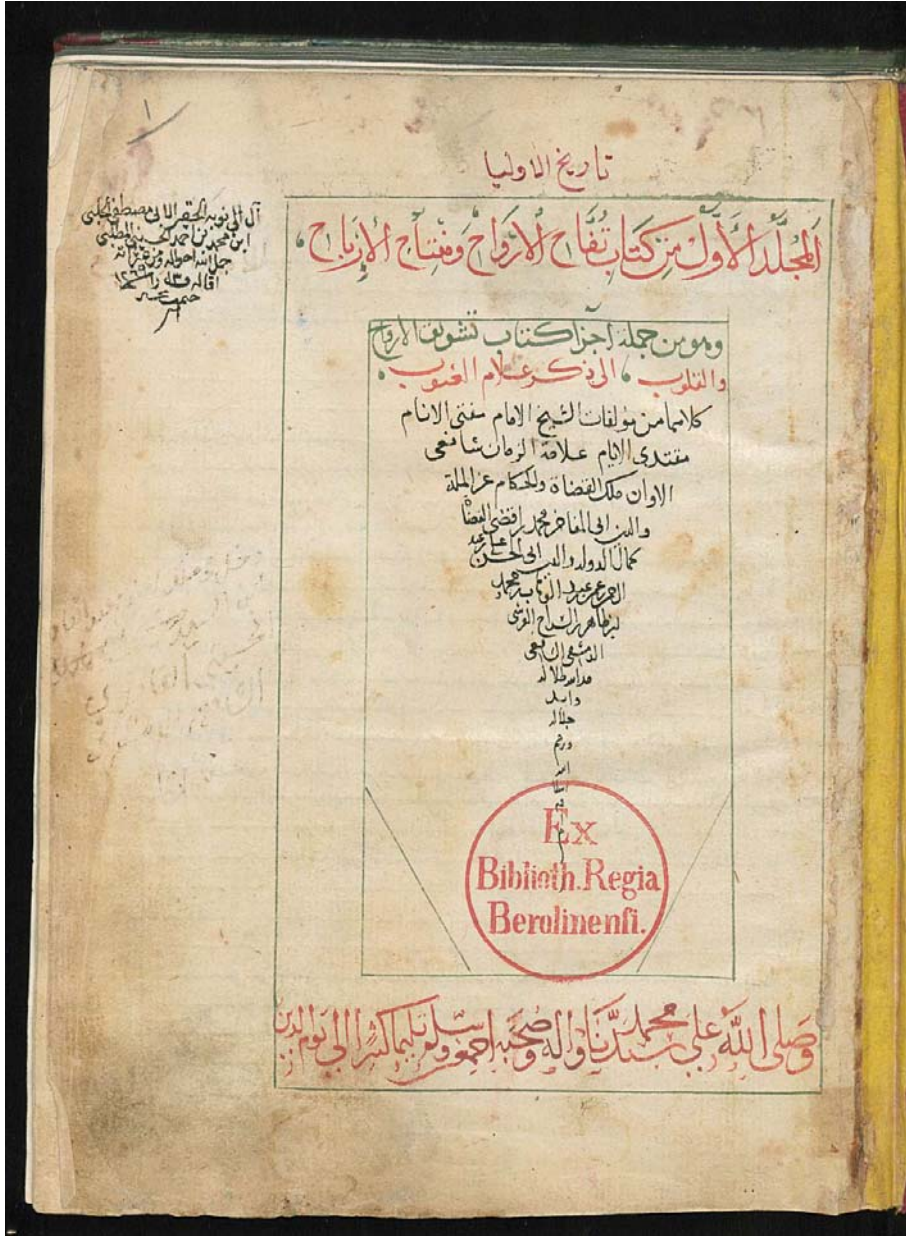 ١
تاريخ الاوليا
آل الى نوبة الحقير الفاني مصطفى الحلبي
ابن محمد بن احمد الحسيني
جل الله احواله
اقاله
المُجلّد الأوّل من كتاب تُفّاح الأرواح ومفتاح الإرباح
وهو من جملة اجزا كتاب تشويق الارواح
والقلوب الى ذكر علام الغيوب
كلاهما من مؤلفات الشيخ الامام مفتى الانام
مقتدى الايام علامة الزمان شافعى
الاوان ملك القضاة والحكام عز الملة
والدين ابى المفاخر محمد بن اقضى القضاة
كمال الدولة والدين ابى الحسن على بن عبد
الرحمن بن عبد الوهاب بن محمد
بن طاهر بن السراج القرشى
الدمشقى الشافعى
مد الله ظلاله
وابد
جلاله
ورحم
الله
اسلا
فه
Ex
Biblioth. Regia
Berolinensi.
وصلى الله على سيدنا محمد واله وصحبه اجمعين وسلم تسليما كثيرا الى يوم الدين